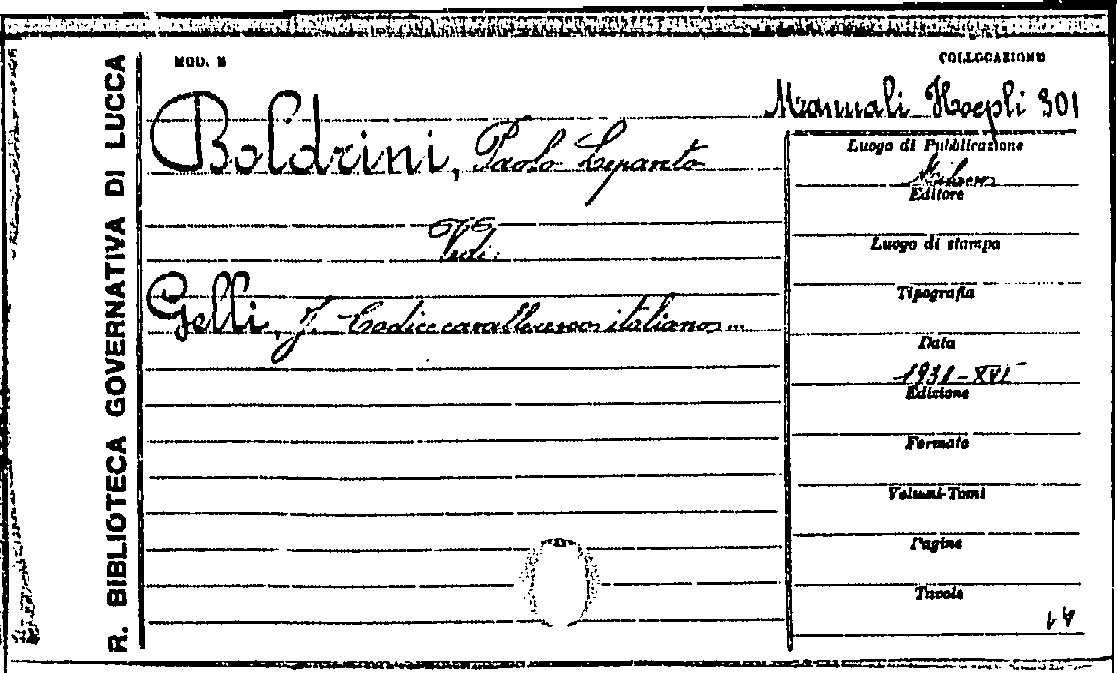 R. BIBLIOTECA GOVERNATIVA DI LUCCA
MOD. B
COLLOCAZIONE
Manuali Hoepli 301
Boldrini, Paolo Lepanto
Vedi:
Gelli, J. Codice cavalleresco italiano...
Luogo di Pubblicazione
Milano
Editore
Luogo di stampa
Tipografia
Data
1931-XVI
Edizione
Formato
Volumi-Tomi
Pagine
Tavole